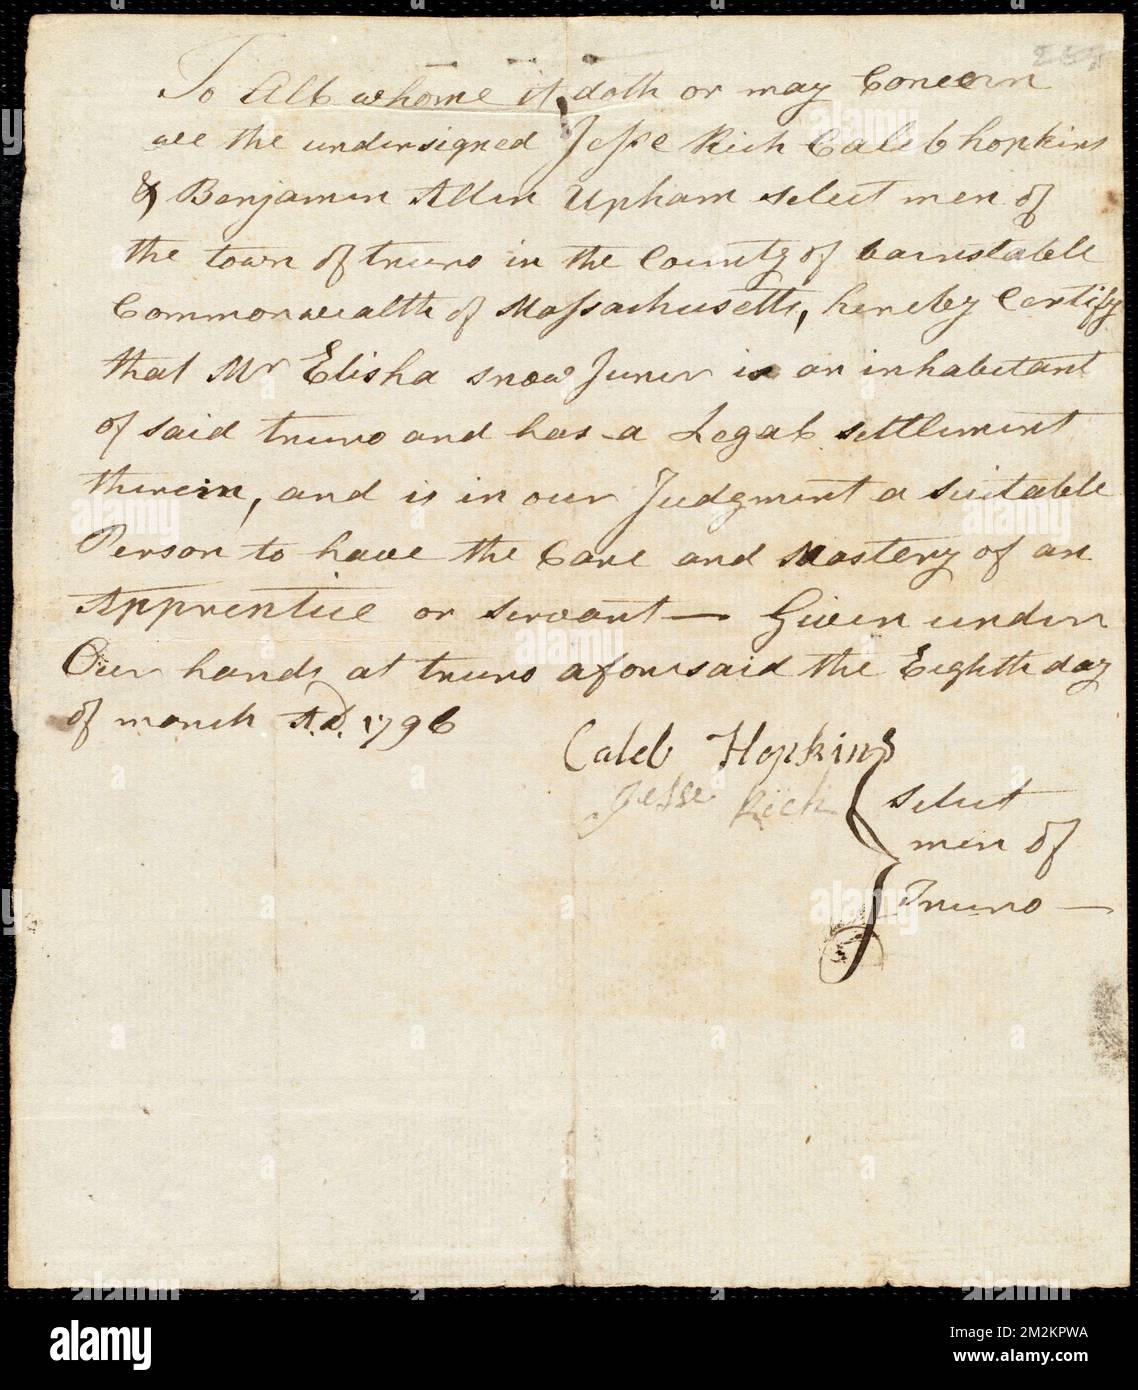 To All whome it doth or may Concern
we the undersigned Jesse Rich Caleb hopkins
& Benjamin Allin Upham select men of
the town of truro in the County of barnstable
Commonwealth of Massachusetts, hereby Certify
that Mr Elisha snow Juner is an inhabetant
of said truro and has a Legal settlement
therein, and is in our Judgment a suitable
Person to have the Care and Mastery of an
Apprentice or servant — Given under
Our hands at truro aforesaid the Eighth day
of march A.D. 1796
Caleb Hopkins
Jesse Rich
select
men of
Truro —
alamy
Image ID: 2M2KPWA
www.alamy.com